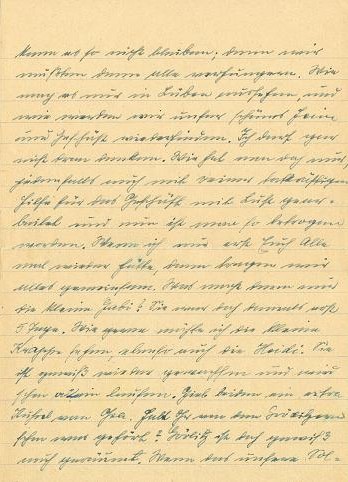 kann es so nicht bleiben, denn wir
müßten dann alle verhungern. Wie
mag es nur in Guben aussehen und
wie werden wir unser schönes Heim
und Geschäft wiederfinden. Ich darf gar
nicht dran denken. Wie hat man doch nur,
jedenfalls auch mit Deiner
Hilfe für das Geschäft mit Lust gear-
beitet und nun ist man so betrogen
worden. Wenn ich nur erst Euch Alle
mal wieder hätte, dann tragen wir
alles gemeinsam. Was macht denn nur
die kleine Gabi? Sie war doch damals erst
5 Tage. Wie gerne möchte ich die kleine
Krappe sehen, ebenso auch die Heidi. Sie
ist gewiß wieder gewachsen und wird
schon allein laufen. Gieb beiden ein extra
Küßel von Opa. Habt Ihr von den
schon was gehört? Görlitz ist doch gewiß
auch geräumt. Wenn das unsere